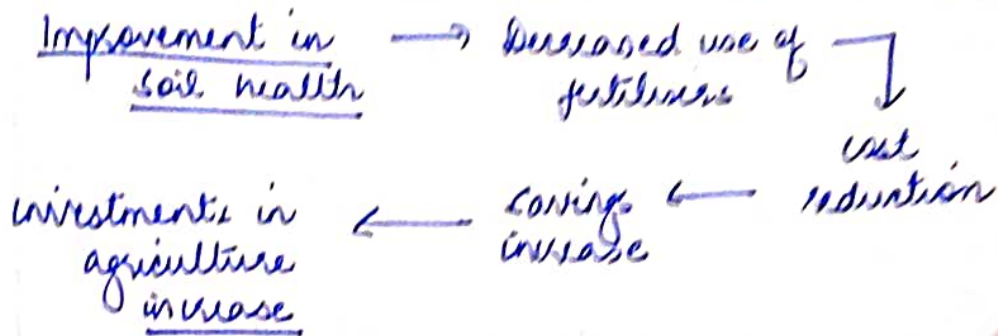 Improvement in
soil health
Decreased use of
fertilisers
cost
reduction
savings
increase
investments in
agriculture
increase